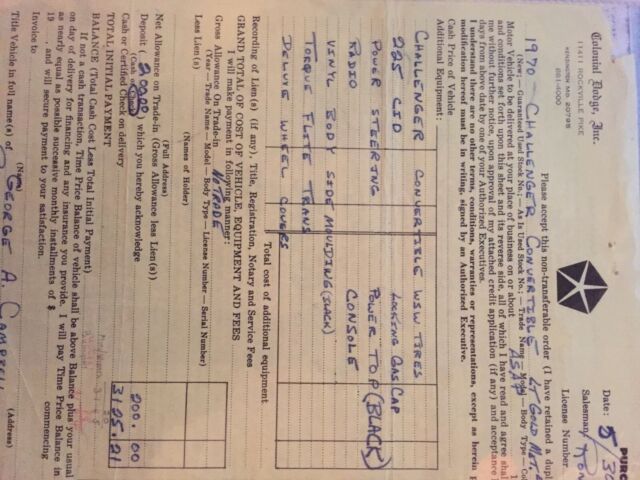 Colonial Dodge, Inc.
11411 ROCKVILLE PIKE
KENSINGTON MD. 20795
881-4000
PURC
Date: 5/30
Salesman
License Number
Please accept this non-transferable order (I have retained a dupl
1970 - CHALLENGER CONVERTIBLE LT GOLD MET.
(New; — Guaranteed Used Stock No.; — As Is Used Stock No.; — Trade Name — Model — Body Type — Co
Motor Vehicle to be delivered at your place of business on or about ASAP
and conditions set forth upon this sheet and its reverse side, all of which I have read and agree shal
me without further notice, upon approval of my attached credit application (if any) and acceptance
days from above date by one of your Authorized Executives.
I understand there are no other terms, conditions, warranties or representations, except as herein p
modification hereof must be in writing, signed by an Authorized Executive.
Cash Price of Vehicle
Additional Equipment:
CHALLENGER CONVERTIBLE WSW TIRES
225 CID LOCKING GAS CAP
POWER STEERING POWER TOP (BLACK)
RADIO CONSOLE
VINYL BODY SIDE MOULDING (BLACK)
TORQUE FLITE TRANS
DELUXE WHEEL COVERS
Total cost of additional equipment
Recording of Lien(s) (if any), Title, Registration, Notary and Service Fees
GRAND TOTAL OF COST OF VEHICLE, EQUIPMENT AND FEES
I will make payment in following manner:
Gross Allowance On Trade-in NO TRADE
(Year — Trade Name — Model — Body Type — License Number — Serial Number)
Less Lien(s)
(Names of Holder)
(Full Address)
Net Allowance on Trade-in (Gross Allowance less Lien(s))
Deposit (200.00) which you hereby acknowledge 200.00
(Cash or Check)
Cash or Certified Check on delivery 3125.21
TOTAL INITIAL PAYMENT
BALANCE (Total Cash Cost Less Total Initial Payment)
If not a cash transaction, Time Price Balance of vehicle shall be above Balance plus your usual
on day of delivery for financing and any insurance you provide. I will pay Time Price Balance in
as nearly equal as possible successive monthly installments of $ commencing
19 . and will secure payment to your satisfaction.
Invoice to
(Name) (Address)
Title Vehicle in full name(s) of GEORGE A. CAMPBELL